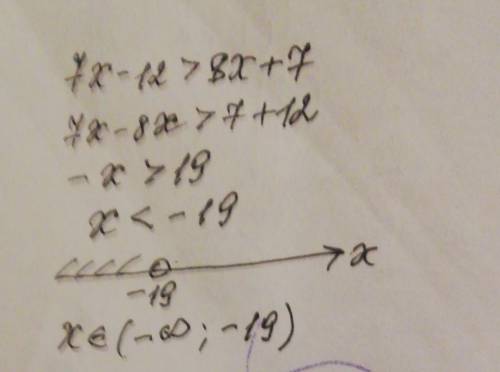 7x-12>8x+7
7x-8x>7+12
-x>19
x<-19
x
-19
x∈(-∞;-19)